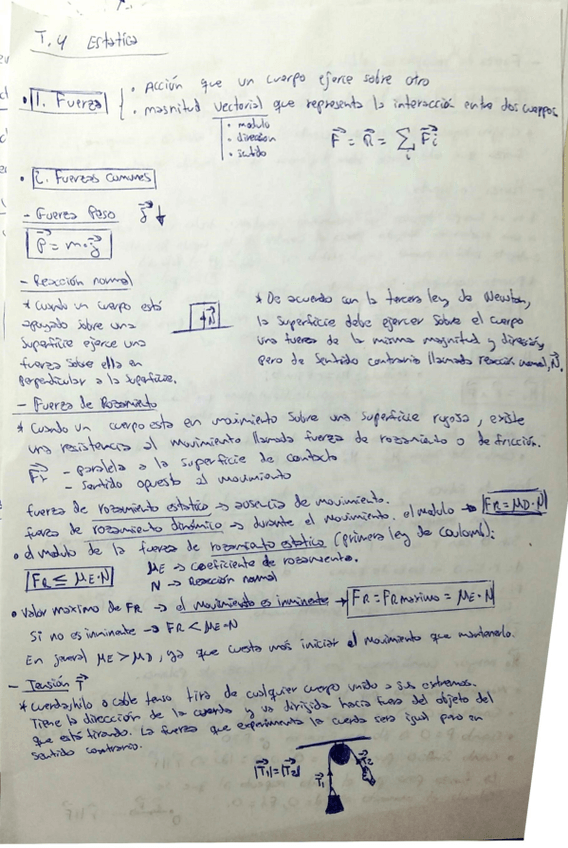 T.4 Estatica
• 1. Fuerza
• Acción que un cuerpo ejerce sobre otro
• magnitud vectorial que representa la interacción entre dos cuerpos
• modulo
• direccion
• sentido
F⃗ = R⃗ = Σᵢ F⃗i
• 2. Fuerzas comunes
- Fuerza Peso g⃗ ↓
P⃗ = m·g⃗
- Reacción normal
* Cuando un cuerpo está
apoyado sobre una
superficie ejerce una
fuerza sobre ella en
perpendicular a la superficie.
N⃗
* De acuerdo con la tercera ley de Newton,
la superficie debe ejercer sobre el cuerpo
una fuerza de la misma magnitud y dirección,
pero de sentido contrario llamada reacción normal, N⃗.
- Fuerza de Rozamiento
* Cuando un cuerpo esta en movimiento sobre una superficie rugosa, existe
una resistencia al movimiento llamada fuerza de rozamiento o de fricción.
F⃗r - paralela a la superficie de contacto
- Sentido opuesto al movimiento
fuerza de rozamiento estatico → ausencia de movimiento.
fuerza de rozamiento dinámico → durante el movimiento. el modulo → FR = μD·N
• el modulo de la fuerza de rozamiento estatico (primera ley de Coulomb):
FR ≤ μE·N
μE → coeficiente de rozamiento.
N → Reacción normal
• Valor maximo de FR → el movimiento es inminente → FR = FR maximo = μE·N
Si no es inminente → FR < μE·N
En general μE > μD, ya que cuesta más iniciar el movimiento que mantenerlo.
- Tensión T⃗
* cuerda, hilo o cable tenso tira de cualquier cuerpo unido a sus extremos.
Tiene la direccción de la cuerda y va dirigida hacia fuera del objeto del
que está tirando. La fuerza que experimenta la cuerda sera igual pero en
sentido contrario.
|T⃗1| = |T⃗2|
T⃗1
T⃗2